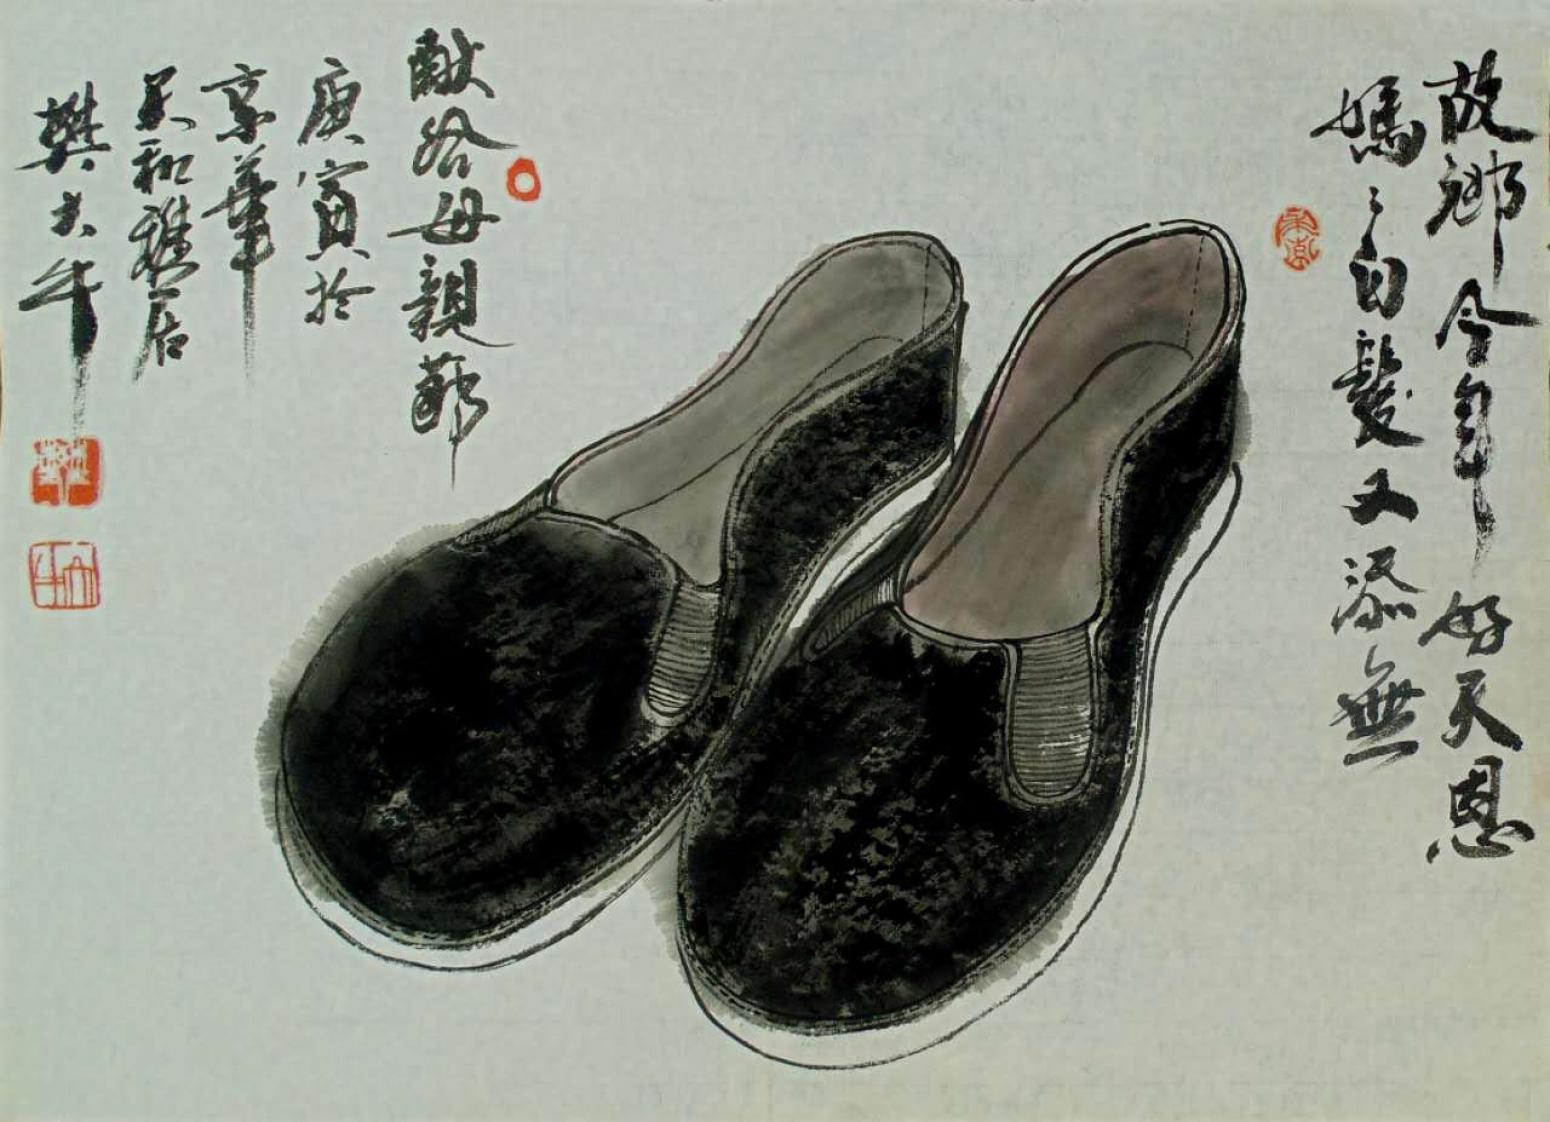 故鄉今年好天恩
媽々白髮又添無
獻給母親節
庚寅於
京華
天和雅居
樊大牛